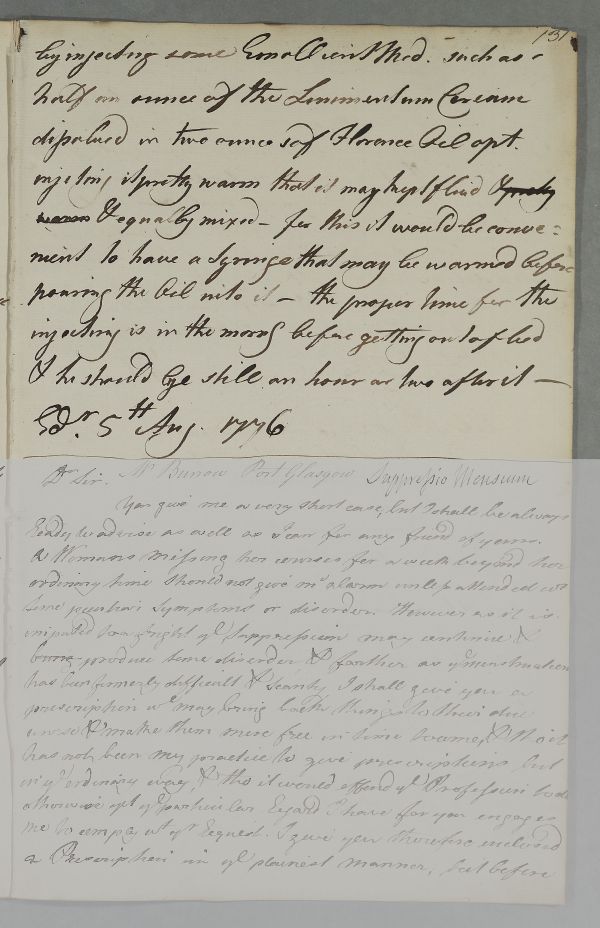 131
by injecting some Emollient Med. such as
half an ounce of the Linimentum
dissolved in two ounces of Florence Oil opt.
injecting it pretty warm that it may kept fluid & pretty
warm & equally mixed – for this it would be conve=
nient to have a Syringe that may be warmed before
pouring the Oil into it – the proper time for the
injecting is in the morng before getting out of bed
& he should lye still an hour or two after it –
Edr. 5th Aug. 1776
Dr Sir. Mr Burrow Port Glasgow Suppressio Mensium
You give me a very short case, but I shall be always
ready to advise as well as I can for any friend of yours.
A Womans missing her courses for a week beyond her
ordinary time should not give me alarm unless attended wt
some peculiar symptoms or disorder. However as it is
imputed to a fright ye Suppression may continue &
produce some disorder & farther as ye menstruation
has been formerly difficult & scanty, I shall give you a
prescription wc may bring back things to their due
& make them more free in time to come, &
has not been my practice to give prescriptions but
in ye ordinary way, & tho it would offend ye Profession to do
otherwise yet ye particular Regard I have for you engages
me to comply wt yr Request. I give you therefore enclosed
a Prescription in ye plainest manner, but before